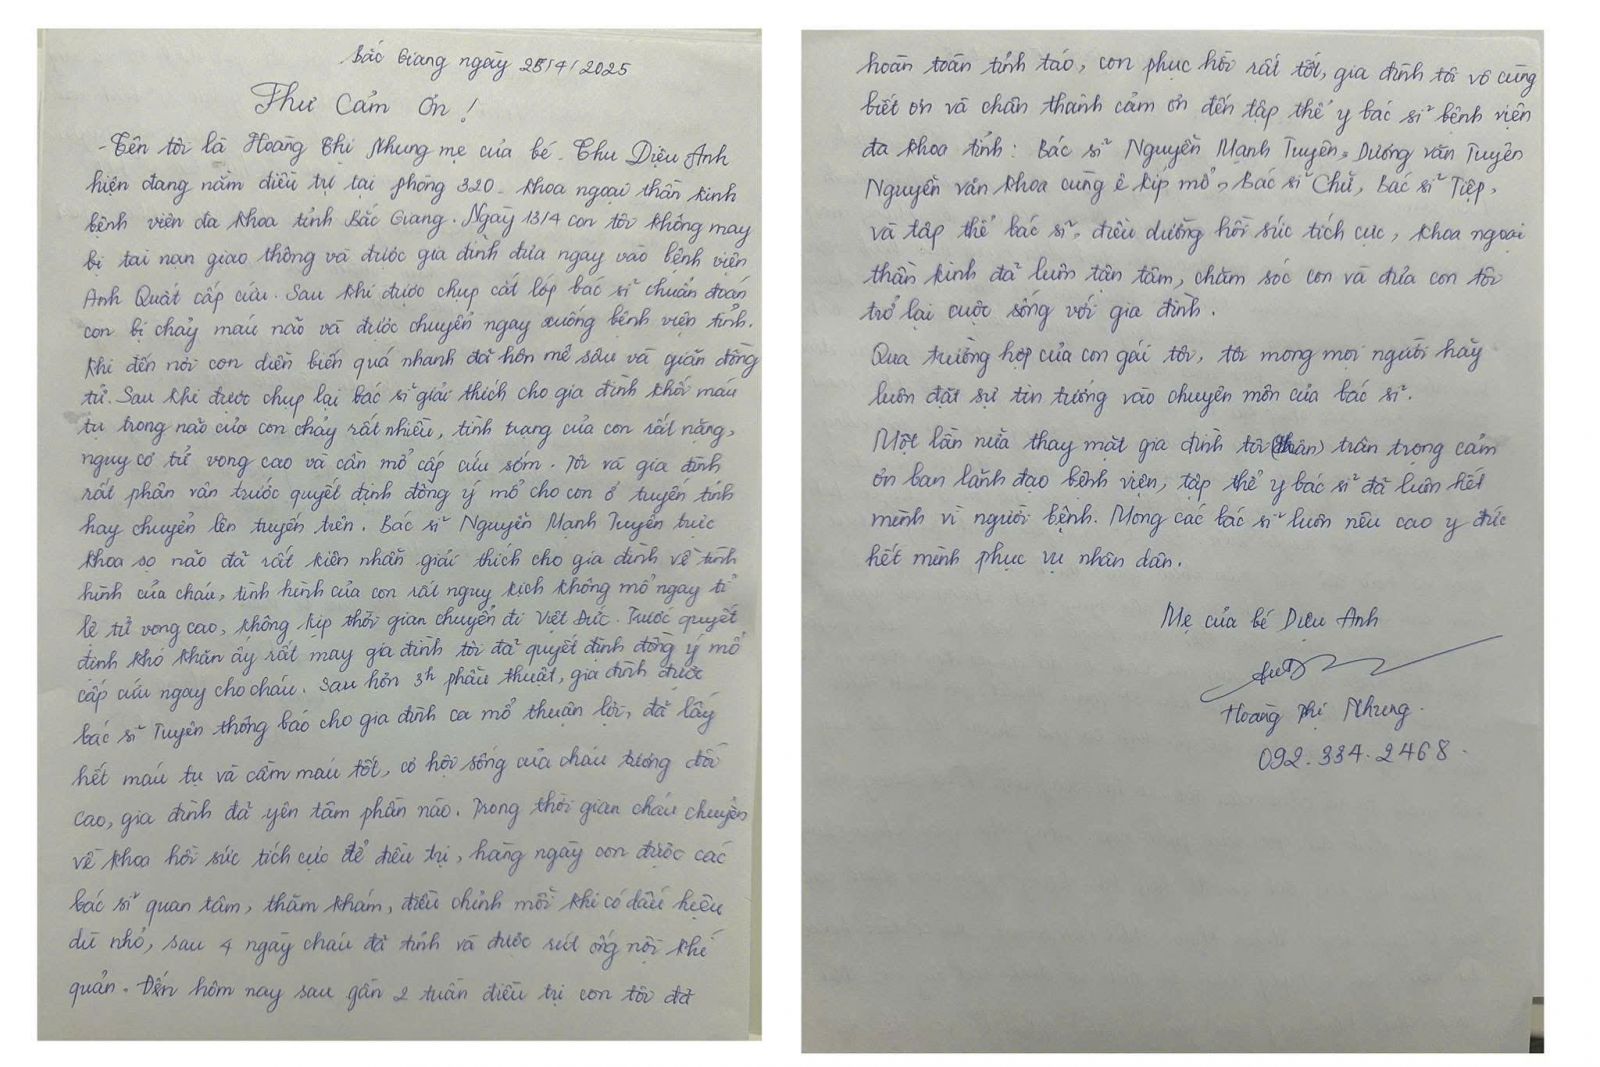 Bắc Giang ngày 25/4/2025
Thư Cảm Ơn!
- Tên tôi là Hoàng Thị Nhung mẹ của bé. Thu Diệu Anh
hiện đang nằm điều trị tại phòng 320. khoa ngoại thần kinh
bệnh viện đa khoa tỉnh Bắc Giang. Ngày 13/4 con tôi không may
bị tai nạn giao thông và được gia đình đưa ngay vào bệnh viện
Anh Quất cấp cứu. Sau khi được chụp cắt lớp bác sĩ chuẩn đoán
con bị chảy máu não và được chuyển ngay xuống bệnh viện tỉnh.
Khi đến nơi con diễn biến quá nhanh đã hôn mê sâu và giãn đồng
tử. Sau khi được chụp lại bác sĩ giải thích cho gia đình khối máu
tụ trong não của con chảy rất nhiều, tình trạng của con rất nặng,
nguy cơ tử vong cao và cần mổ cấp cứu sớm. Tôi và gia đình
rất phân vân trước quyết định đồng ý mổ cho con ở tuyến tỉnh
hay chuyển lên tuyến trên. Bác sĩ Nguyễn Mạnh Tuyên trực
khoa sọ não đã rất kiên nhẫn giải thích cho gia đình về tình
hình của cháu, tình hình của con rất nguy kịch không mổ ngay tỉ
lệ tử vong cao, không kịp thời gian chuyển đi Việt Đức. Trước quyết
định khó khăn ấy rất may gia đình tôi đã quyết định đồng ý mổ
cấp cứu ngay cho cháu. Sau hơn 3h phẫu thuật, gia đình được
bác sĩ Tuyên thông báo cho gia đình ca mổ thuận lợi, đã lấy
hết máu tụ và cầm máu tốt, cơ hội sống của cháu tương đối
cao, gia đình đã yên tâm phần nào. Trong thời gian cháu chuyển
về khoa hồi sức tích cực để điều trị, hàng ngày con được các
bác sĩ quan tâm, thăm khám, điều chỉnh mỗi khi có dấu hiệu
dù nhỏ, sau 4 ngày cháu đã tỉnh và được rút ống nội khí
quản. Đến hôm nay sau gần 2 tuần điều trị con tôi đã
hoàn toàn tỉnh táo, con phục hồi rất tốt, gia đình tôi vô cùng
biết ơn và chân thành cảm ơn đến tập thể y bác sĩ bệnh viện
đa khoa tỉnh: Bác sĩ Nguyễn Mạnh Tuyên, Dương Văn Tuyên
Nguyễn Văn Khoa cùng ê kíp mổ, Bác sĩ Chữ, Bác sĩ Tiệp,
và tập thể bác sĩ. điều dưỡng hồi sức tích cực, khoa ngoại
thần kinh đã luôn tận tâm, chăm sóc con và đưa con tôi
trở lại cuộc sống với gia đình.
Qua trường hợp của con gái tôi, tôi mong mọi người hãy
luôn đặt sự tin tưởng vào chuyên môn của bác sĩ.
Một lần nữa thay mặt gia đình tôi trân trọng cảm
ơn ban lãnh đạo bệnh viện, tập thể y bác sĩ đã luôn hết
mình vì người bệnh. Mong các bác sĩ luôn nêu cao y đức
hết mình phục vụ nhân dân.
Mẹ của bé Diệu Anh
Hoàng Thị Nhung.
092.334.2468.